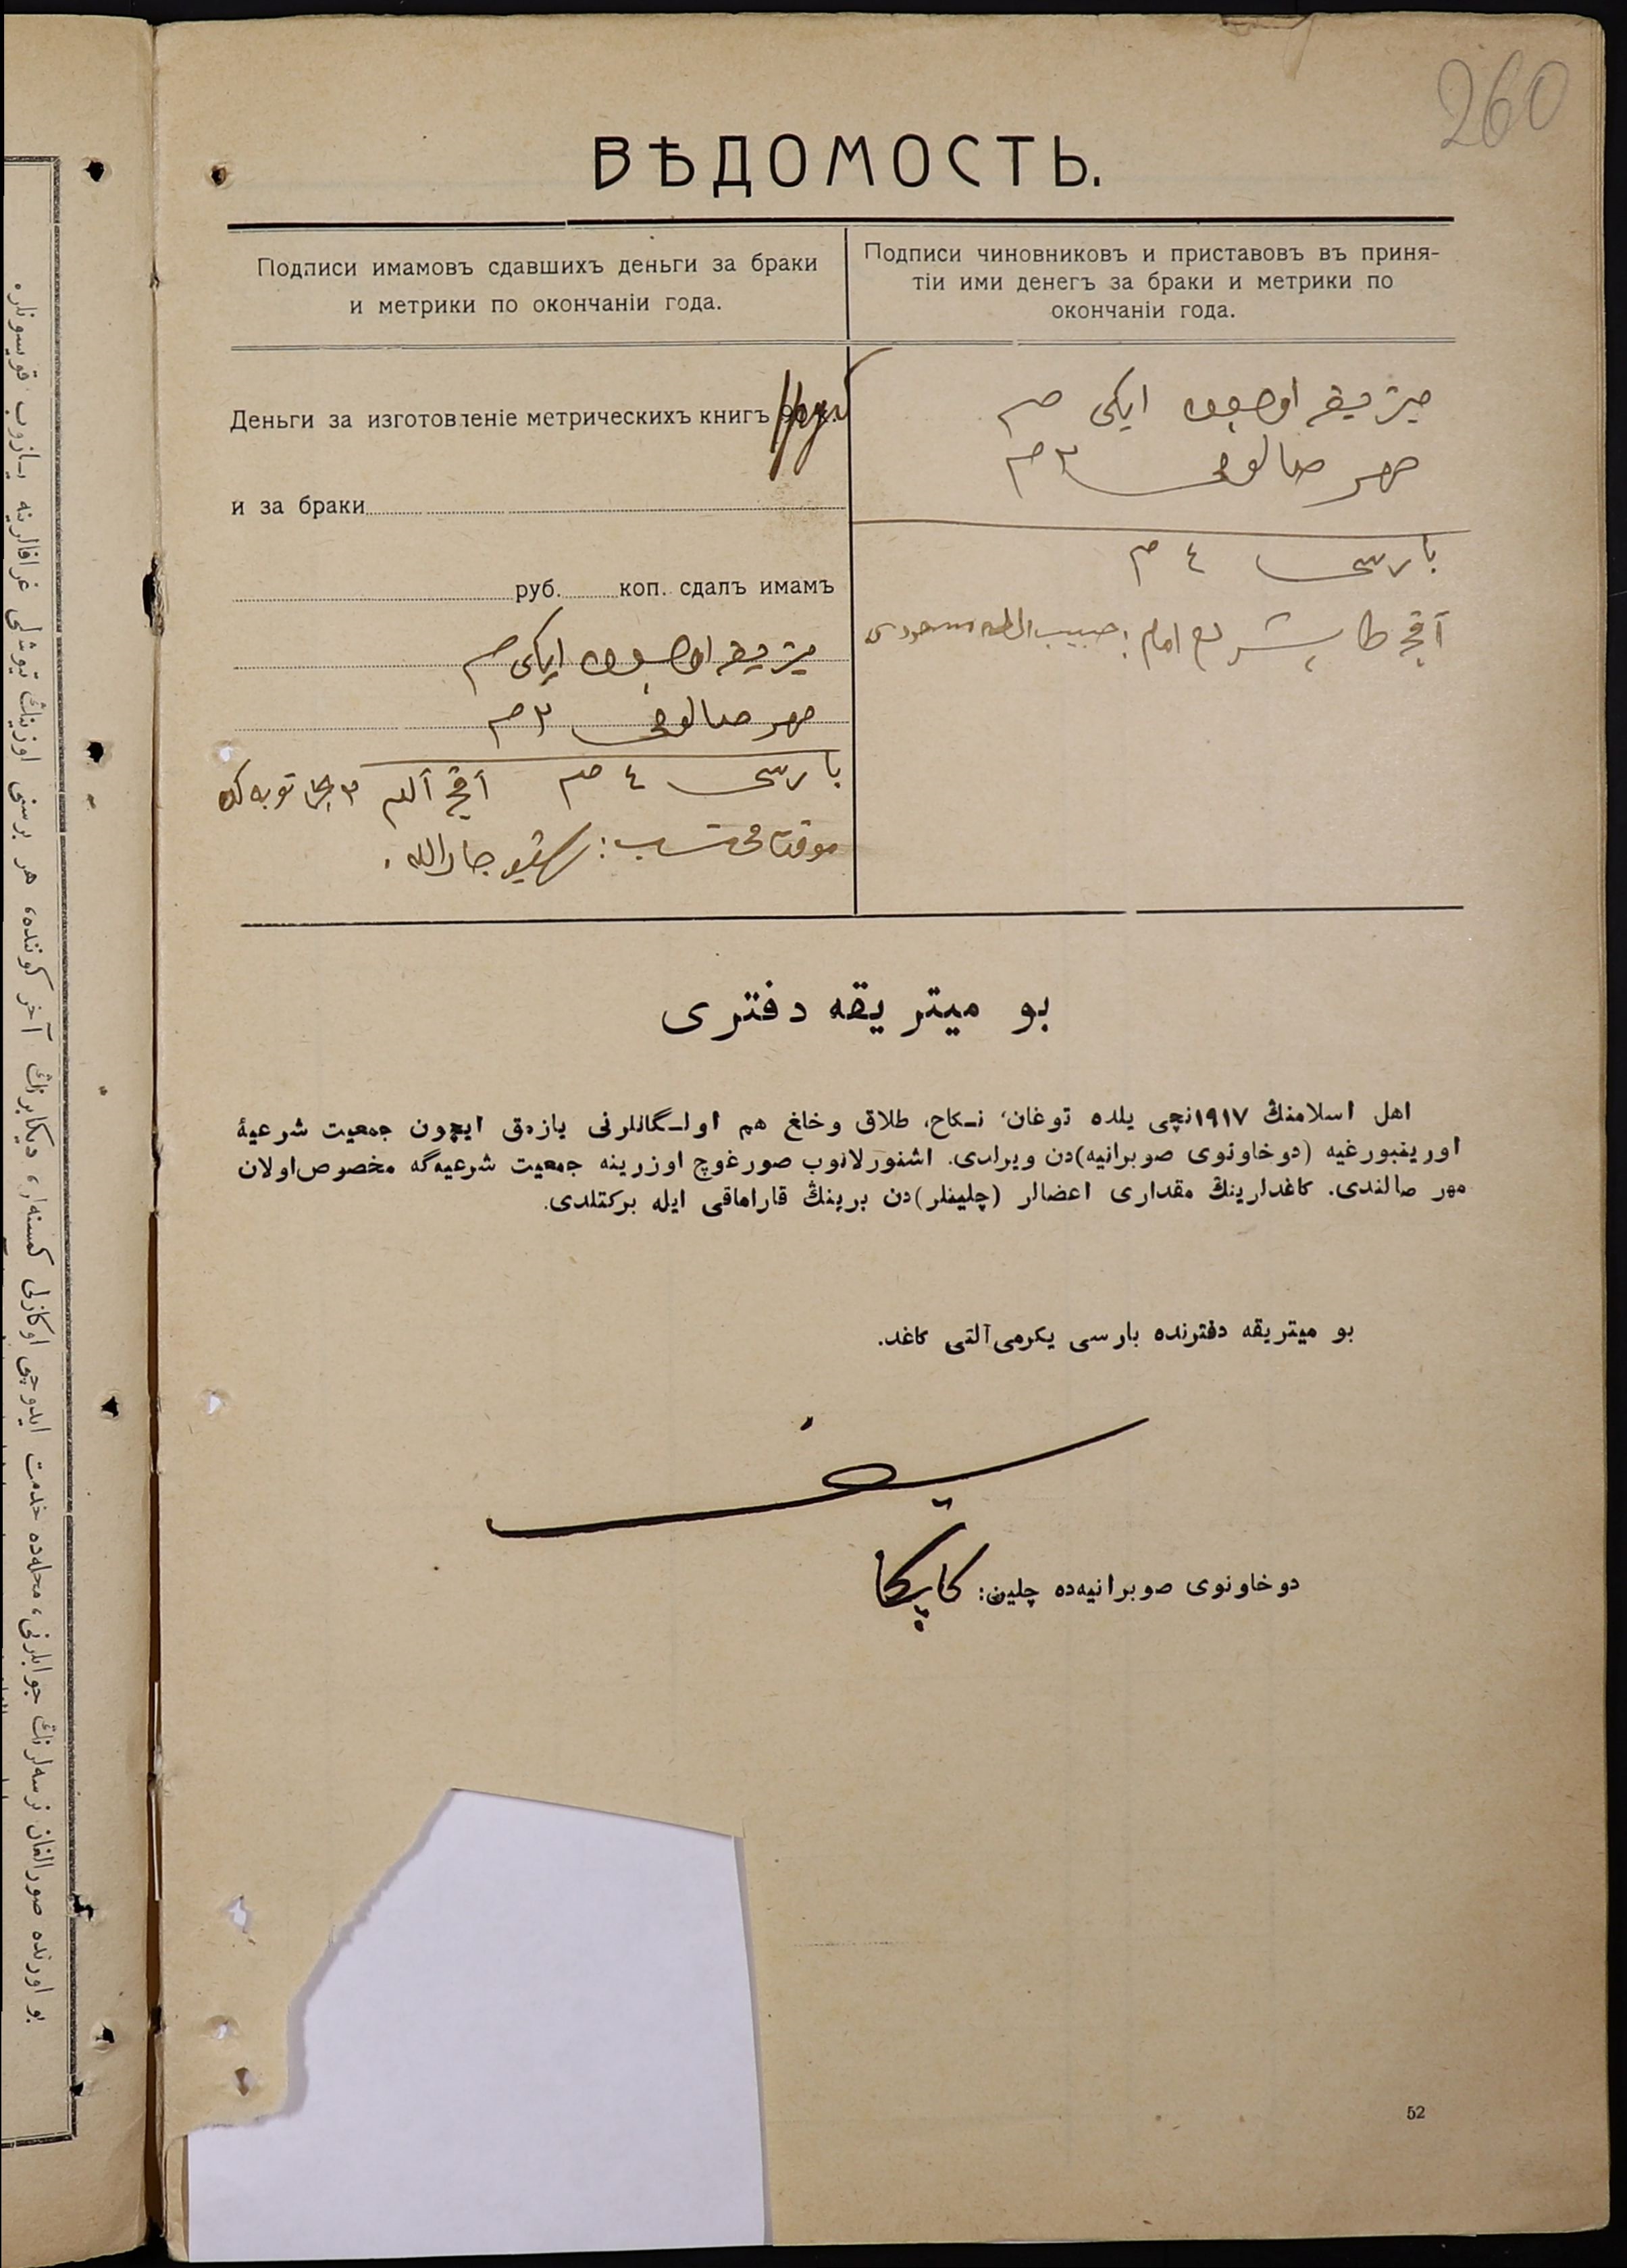 260
ВѢДОМОСТЬ.
Подписи имамовъ сдавшихъ деньги за браки
и метрики по окончаніи года.
Подписи чиновниковъ и приставовъ въ приня-
тіи ими денегъ за браки и метрики по
окончаніи года.
Деньги за изготовленіе метрическихъ книгъ
и за браки
руб. коп. сдалъ имамъ
ميتريقه اوچون ايكى صم
مهر صالوغى ٢ صم
بارسى ٤ صم آقچه آلدم
موقت محتسب: جارالله.
ميتريقه اوچون ايكى صم
مهر صالوغى ٢ صم
بارسى ٤ صم
آقچه طابشردم امام: حبيب الله مسعودى
بو ميتريقه دفترى
اهل اسلامنڭ ١٩١٧نچى يلده توغان، نـكاح، طلاق وخلغ هم اولـگانلرنى يازمق ايچون جمعيت شرعيهٔ
اورينبورغيه (دوخاونوى صوبرانيه)دن ويرلدى. اشنورلانوب صورغوچ اوزرينه جمعيت شرعيه‌گه مخصوص اولان
مهر صالندى. كاغدلرينڭ مقدارى اعضالر (چلينلر)دن برينڭ قاراماقى ايله بركتلدى.
بو ميتريقه دفترنده بارسى يكرمى آلتى كاغد.
دوخاونوى صوبرانيه‌ده چلين: كاپكا
52
بو اورنده صورالغان نرسه‌لرنڭ جوابلرنى، محله‌ده خدمت ايدوچى اوكازلى كمسنه‌لر، ديكابرنڭ آخر كوننده، هر برسى اوزينڭ تيوشلى غرافالرينه يازوب قويسونلر.